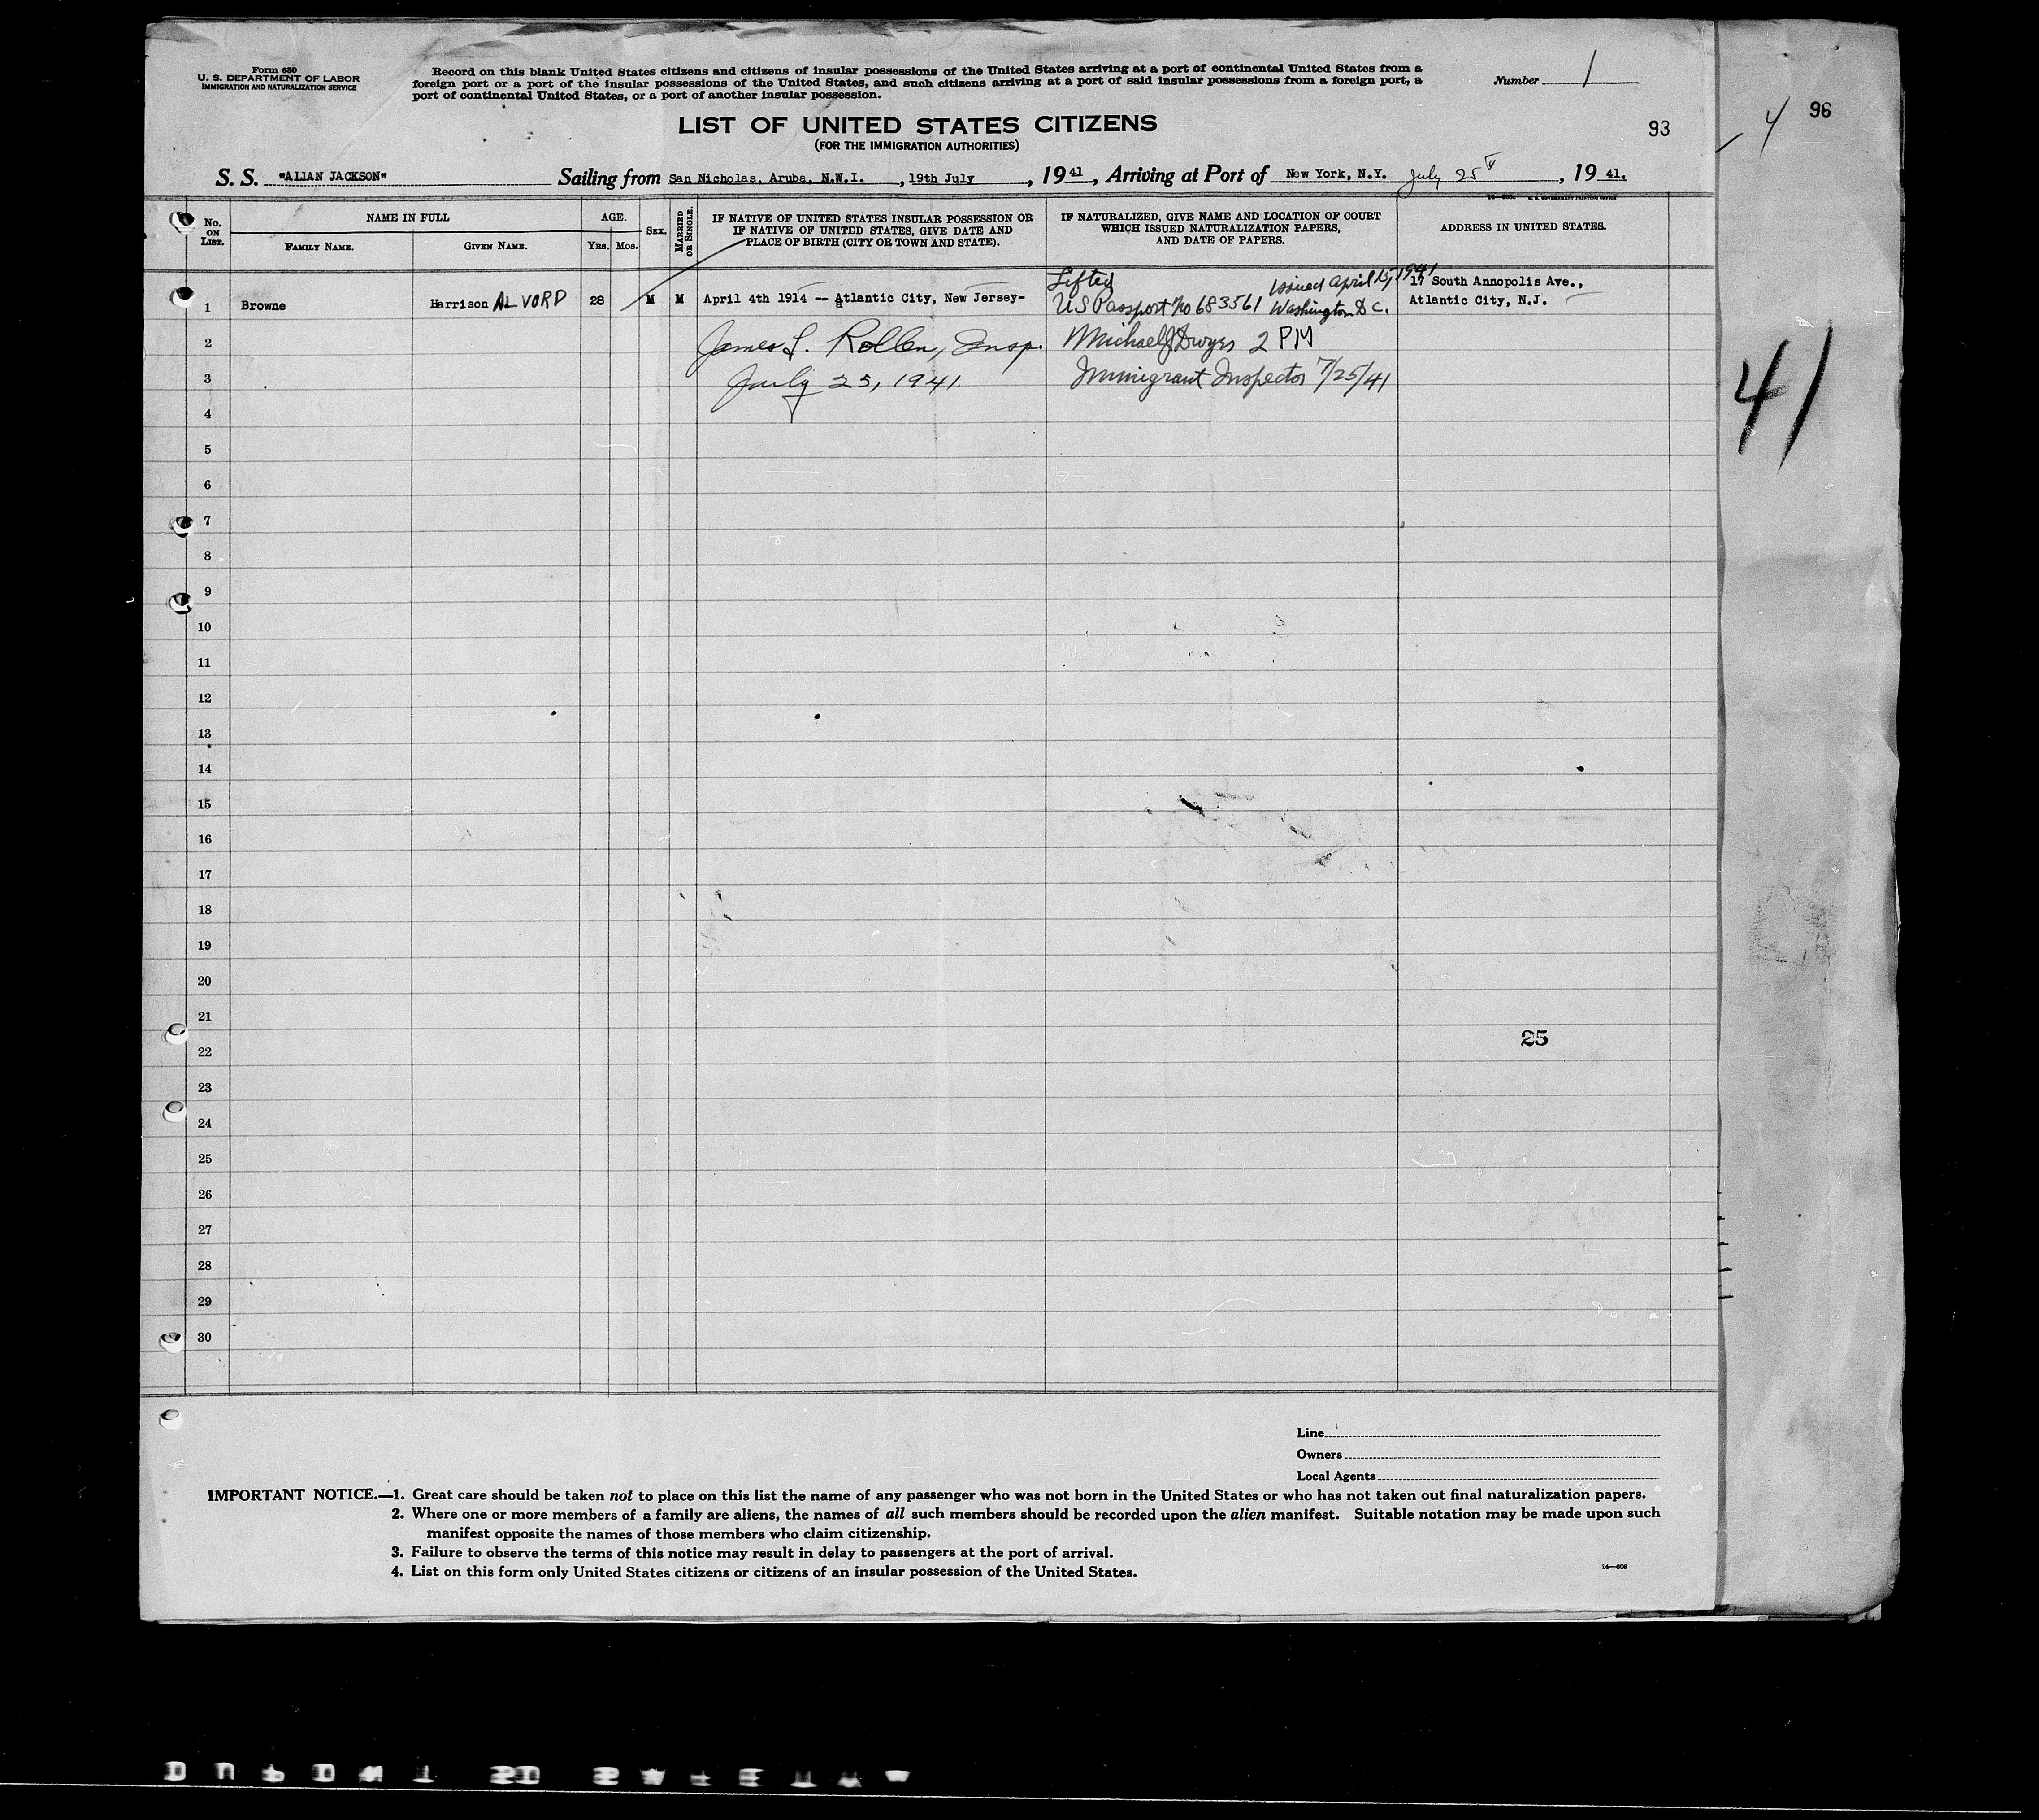 Form 630
U. S. DEPARTMENT OF LABOR
IMMIGRATION AND NATURALIZATION SERVICE
Record on this blank United States citizens and citizens of insular possessions of the United States arriving at a port of continental United States from a
foreign port or a port of the insular possessions of the United States, and such citizens arriving at a port of said insular possessions from a foreign port, a
port of continental United States, or a port of another insular possession.
Number 1
4 96
LIST OF UNITED STATES CITIZENS
(FOR THE IMMIGRATION AUTHORITIES)
93
S. S. "ALLAN JACKSON" Sailing from San Nicholas, Aruba, N.W.I. , 19th July , 19 41 , Arriving at Port of New York, N.Y. July 25 , 19 41.
No. ON LIST.
NAME IN FULL
FAMILY NAME.
GIVEN NAME.
AGE.
YRS. MOS.
SEX.
MARRIED OR SINGLE.
IF NATIVE OF UNITED STATES INSULAR POSSESSION OR
IF NATIVE OF UNITED STATES, GIVE DATE AND
PLACE OF BIRTH (CITY OR TOWN AND STATE).
IF NATURALIZED, GIVE NAME AND LOCATION OF COURT
WHICH ISSUED NATURALIZATION PAPERS,
AND DATE OF PAPERS.
ADDRESS IN UNITED STATES.
Lifted issued April 15, 1941 17 South Annopolis Ave.,
1 Browne Harrison ALVORD 28 M M April 4th 1914 -- Atlantic City, New Jersey- US Passport No 683561 Washington D C. Atlantic City, N.J.
2 James L. Rollen, Insp. Michael J Dwyer 2 PM
3 July 25, 1941 Immigrant Inspector 7/25/41
41
4
5
6
7
8
9
10
11
12
13
14
15
16
17
18
19
20
21
25
22
23
24
25
26
27
28
29
30
Line
Owners
Local Agents
IMPORTANT NOTICE.—1. Great care should be taken not to place on this list the name of any passenger who was not born in the United States or who has not taken out final naturalization papers.
2. Where one or more members of a family are aliens, the names of all such members should be recorded upon the alien manifest. Suitable notation may be made upon such
manifest opposite the names of those members who claim citizenship.
3. Failure to observe the terms of this notice may result in delay to passengers at the port of arrival.
4. List on this form only United States citizens or citizens of an insular possession of the United States.
14—608